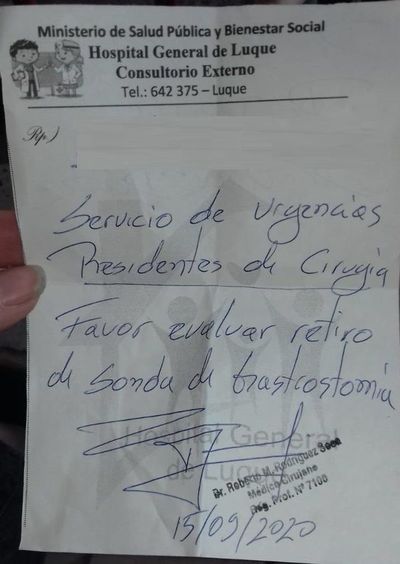 Ministerio de Salud Pública y Bienestar Social
Hospital General de Luque
Consultorio Externo
Tel.: 642 375 – Luque
Rp.)
Servicio de Urgencias
Residentes de Cirugia
Favor evaluar retiro
de Sonda de Gastrostomia
Hospital General
de Luque
Dr. Roberto M. Rodríguez Sosa
Médico Cirujano
Reg. Prof. Nº 7100
15/09/2020